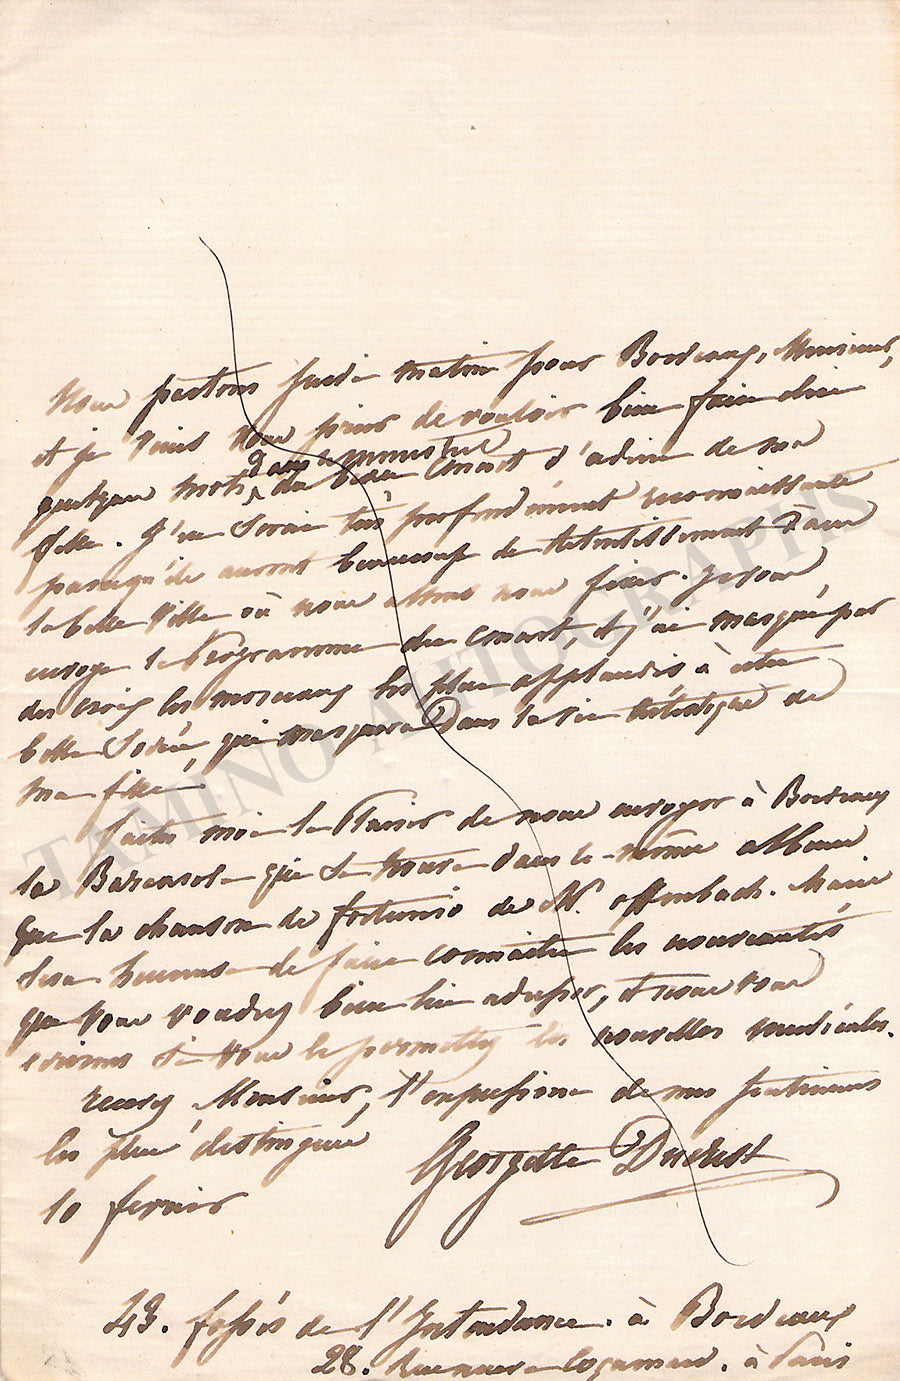 Nous partons jeudi matin pour Bordeaux, Monsieur,
et je viens vous prier de vouloir bien faire dire
quelques mots dans le menestrel du beau Concert d'adieu de ma
fille. J'en serai très profondément reconnaissante
parcequ'ils auront beaucoup de retentissement dans
la belle Ville où nous allons nous fixer. Je vous
envoye le Programme du concert, et j'ai marqué par
des croix les morceaux les plus applaudis à cette
belle Soirée, qui marquera Dans la vie Artistique de
ma fille.
faites moi le Plaisir de nous envoyer à Bordeaux
la Barcarole qui se trouve dans le même album
que la chanson de fortunio de M. offenbach. Marie
sera heureuse de faire connaître les nouveautés
que vous voudrez bien lui adresser, et nous vous
écrirons si vous le permettez les nouvelles musicales.
recevez Monsieur, l'expression de mes sentimens
les plus distingués
Georgette Ducrest
10 fevrier
43. fossés de l'Intendance. à Bordeaux
28. Rue à Paris
TAMINO AUTOGRAPHS